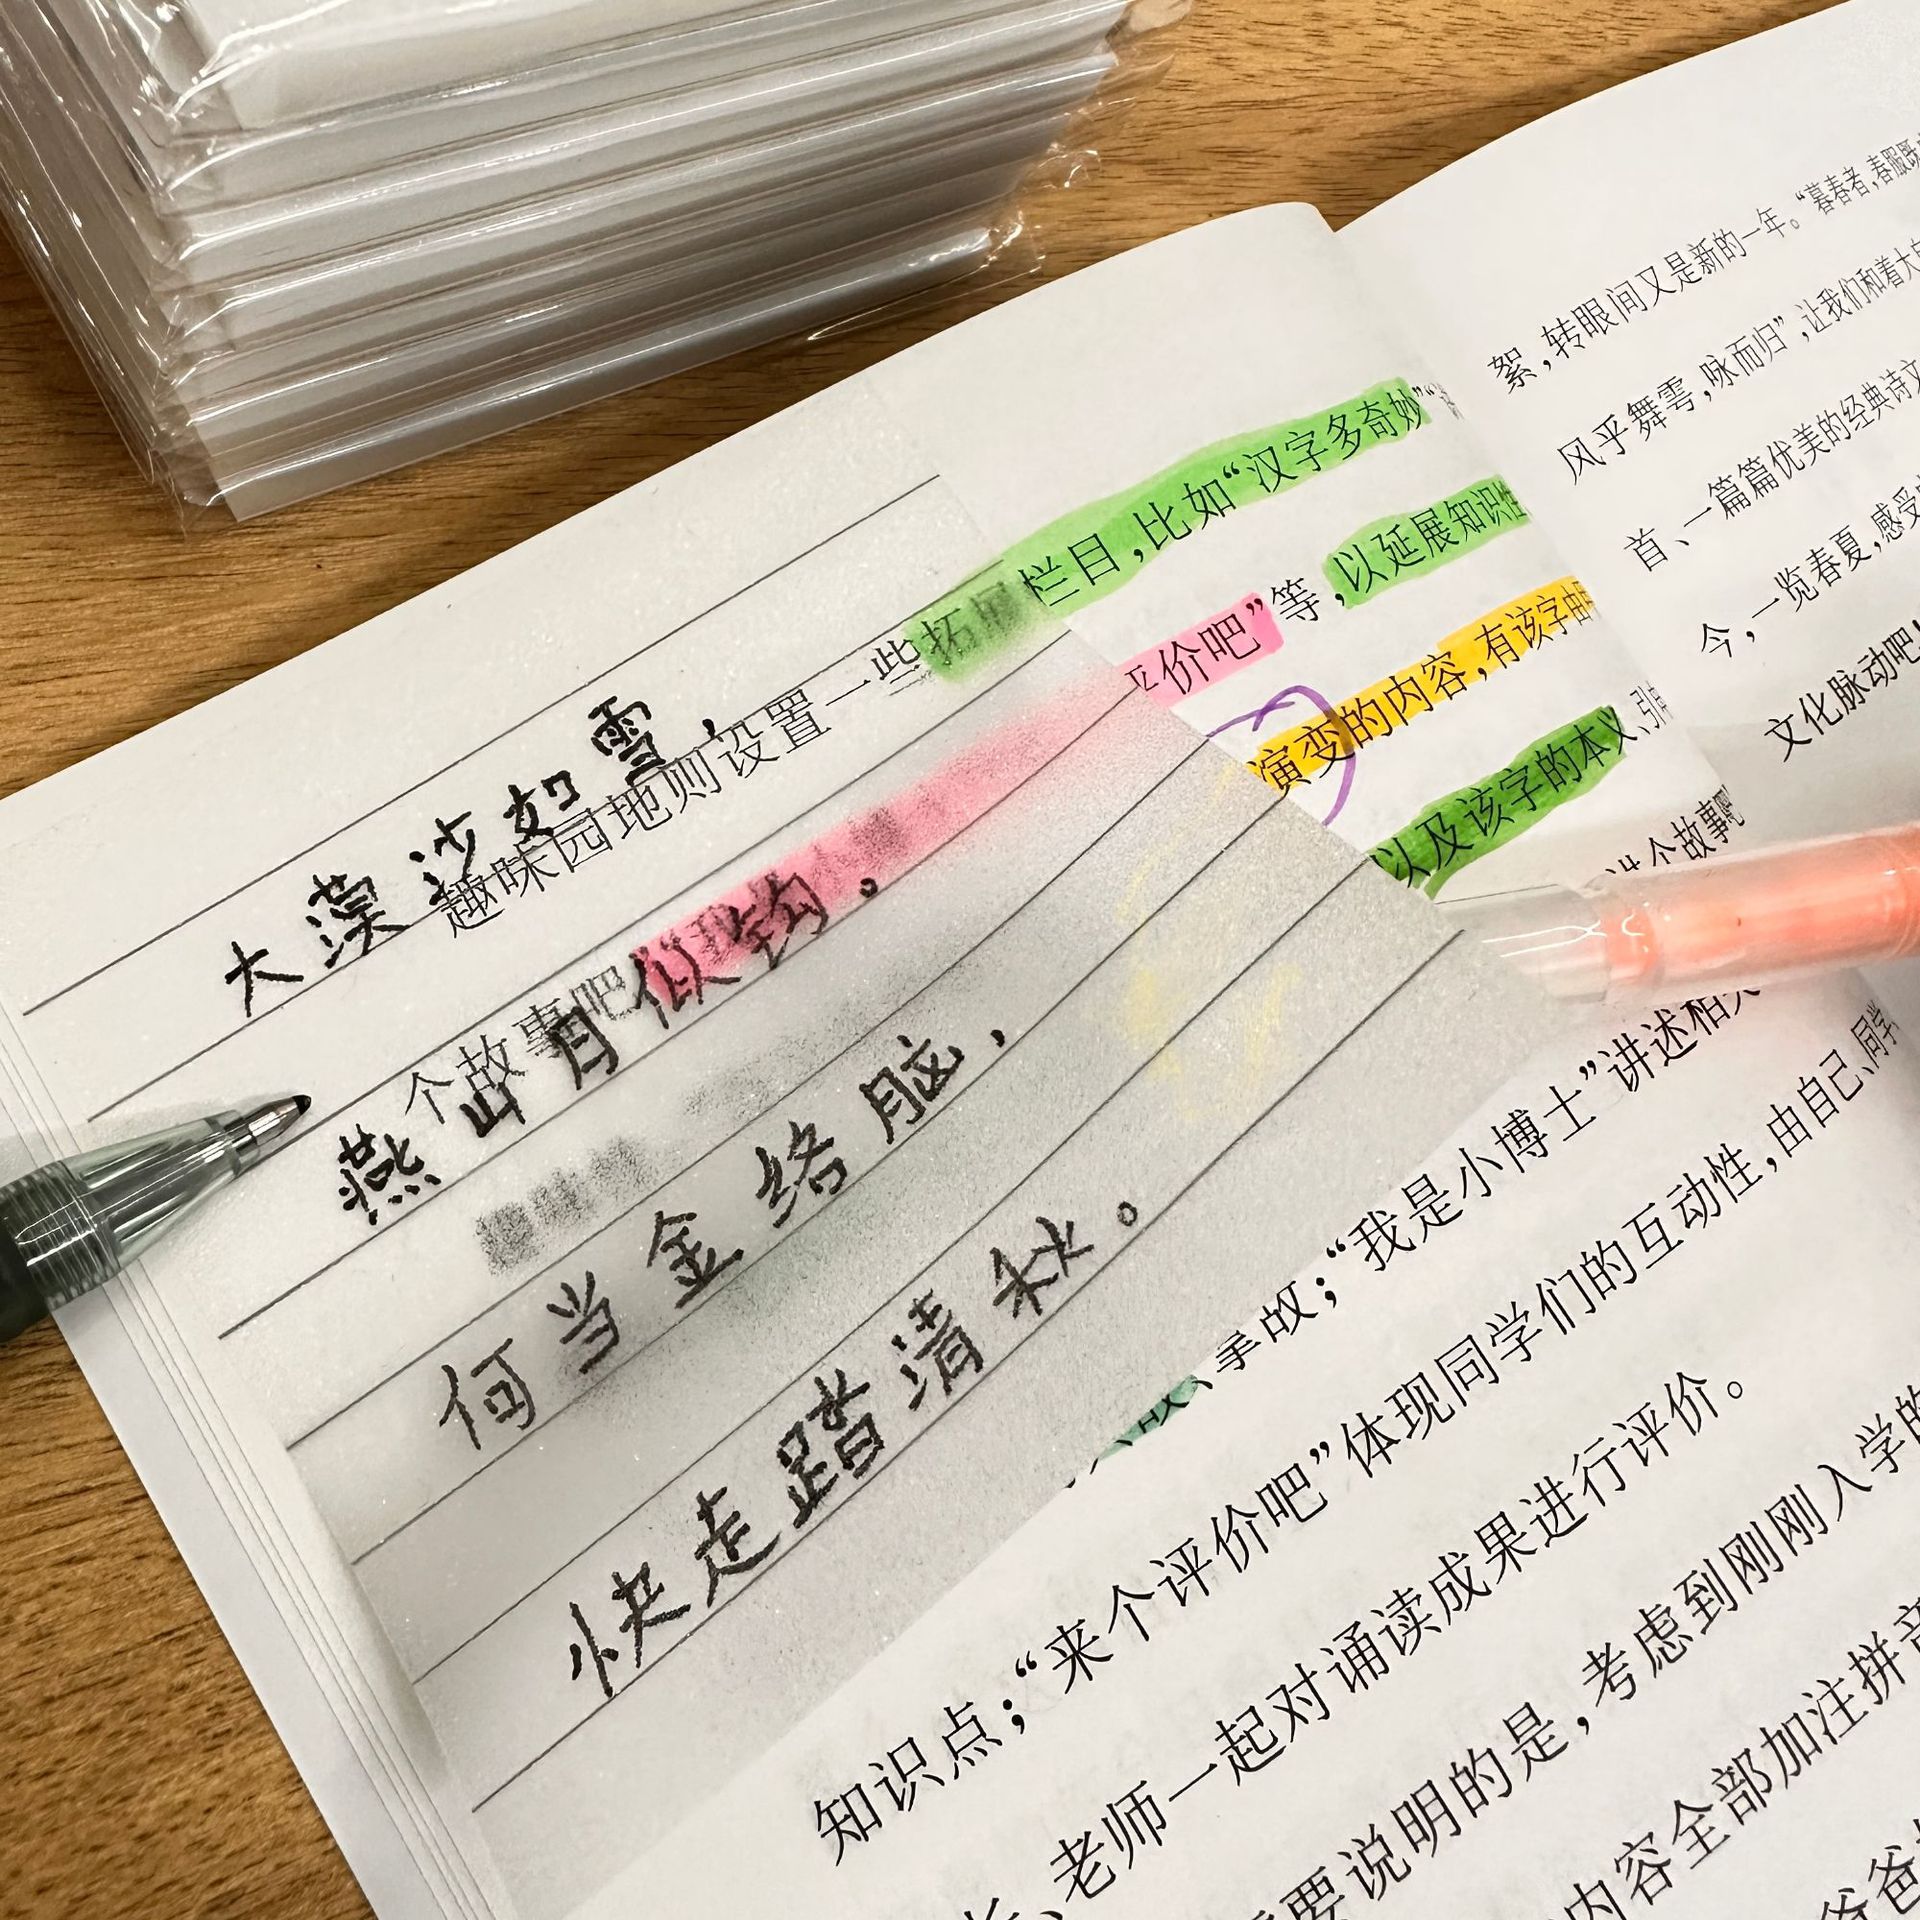 大漠沙如雪，
燕山月似钩。
何当金络脑，
快走踏清秋。
趣味园地则设置一些拓展栏目，比如“汉字多奇妙”“
个故事吧
评价吧”等，以延展知识性
演变的内容，有该字由
以及该字的本义、引申
讲个故事吧
事故；“我是小博士”讲述相关
知识点；“来个评价吧”体现同学们的互动性，由自己、同学
长、老师一起对诵读成果进行评价。
要说明的是，考虑到刚刚入学的
内容全部加注拼音
爸爸
絮，转眼间又是新的一年。“暮春者，春服既
风乎舞雩，咏而归”，让我们和着大自
首、一篇篇优美的经典诗文
今，一览春夏，感受
文化脉动吧！